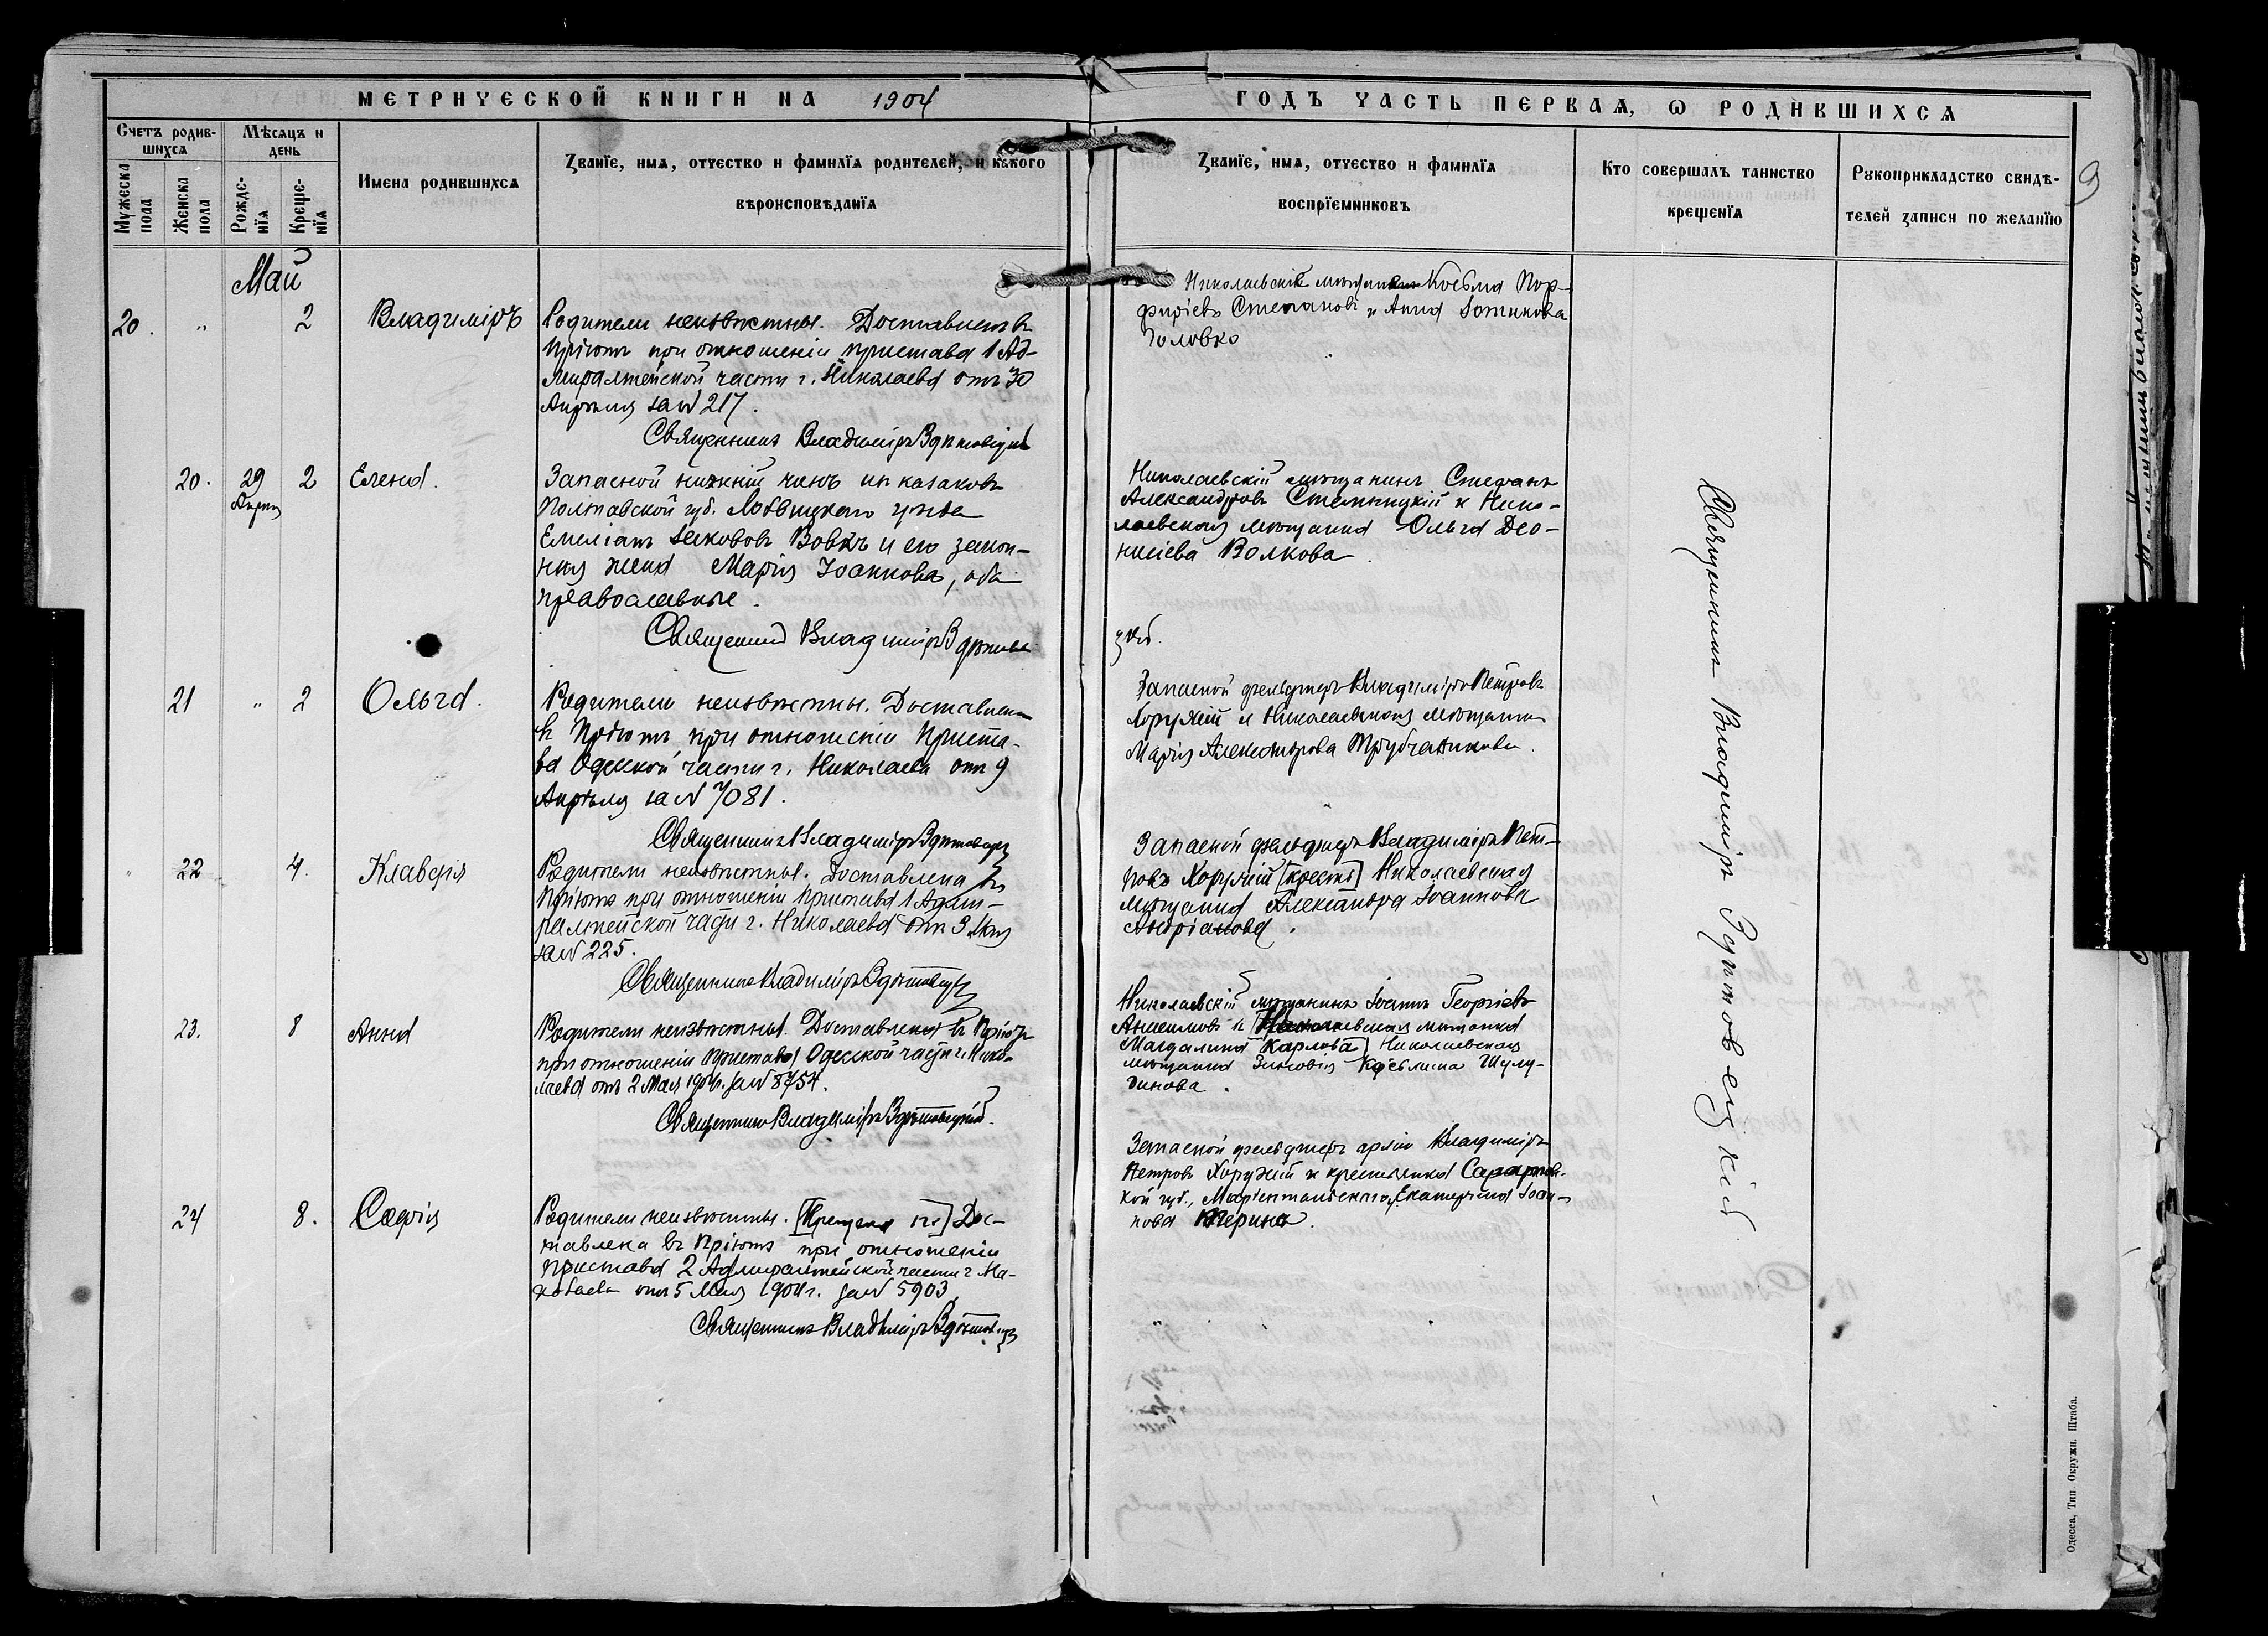 МЕТРИЧЕСКОЙ КНИГИ НА 1904
ГОДЪ ЧАСТЬ ПЕРВАЯ, Ѡ РОДИВШИХСЯ
9
Счетъ родив-
шихся
Мѣсяцъ и
день
Мужеска
пола
Женска
пола
Рожде-
нїя
Креще-
нїя
Имена родившихся
Званїе, имя, отчество и фамилїя родителей, и какого
вѣроисповѣданїя
Званїе, имя, отчество и фамилїя
воспрїемниковъ
Кто совершалъ таинство
крещенїя
Рукоприкладство свидѣ-
телей записи по желанїю
Май
20. " 2 Владиміръ
Родители неизвѣстны. Доставленъ въ
пріютъ при отношеніи пристава 1 Ад-
миралтейской части г. Николаева отъ 30
Апрѣля за № 217.
Священникъ Владиміръ
Николаевскіе Косьма Пор-
фиріевъ Степановъ и Анна
Головко
20. 29 2 Елена.
Запасной нижній чинъ изъ казаковъ
Полтавской губ.
Емеліанъ Іакововъ Вовкъ и его закон-
ная жена Марія Іоаннова, оба
православные.
Священникъ Владиміръ
Николаевскій мѣщанинъ Стефанъ
Александровъ и Нико-
лаевская мѣщанка Ольга Део-
нисіева Волкова.
21 " 2 Ольга.
Родители неизвѣстны. Доставлена
въ Пріютъ при отношеніи Приста-
ва Одесской части г. Николаева отъ 9
Апрѣля за № 7081.
Священникъ Владиміръ
Запасной фельдшеръ Владиміръ Петровъ
Хоружій и Николаевская мѣщанка
Марія Александрова
" 22 4. Клавдія
Родители неизвѣстны. Доставлена въ
Пріютъ при отношеніи Пристава 1 Адми-
ралтейской части г. Николаева отъ 3 Мая
за № 225.
Священникъ Владиміръ
Запасной фельдшеръ Владиміръ Пет-
ровъ Хоружій Николаевская
мѣщанка Александра Іоаннова
Андріанова.
23. 8 Анна
Родители неизвѣстны. Доставлена въ Пріютъ
при отношеніи Пристава Одесской части г. Нико-
лаева отъ 2 Мая 1904 г. за № 8754.
Священникъ Владиміръ
Николаевскій мѣщанинъ Іоаннъ Георгіевъ
Анисимовъ и мѣщанка
Магдалина Карлова Николаевская
мѣщанка Зиновія
24 8. Софія
Родители неизвѣстны. Дос-
тавлена въ Пріютъ при отношеніи
Пристава 2 Адмиралтейской части г. Ни-
колаева отъ 5 Мая 1904 г. за № 5903
Священникъ Владиміръ
Запасной фельдшеръ арміи Владиміръ
Петровъ Хоружій и крестьянка
кой губ., Екатерина Іоан-
нова
Священникъ Владиміръ
Одесса, Тип. Окружн. Штаба.